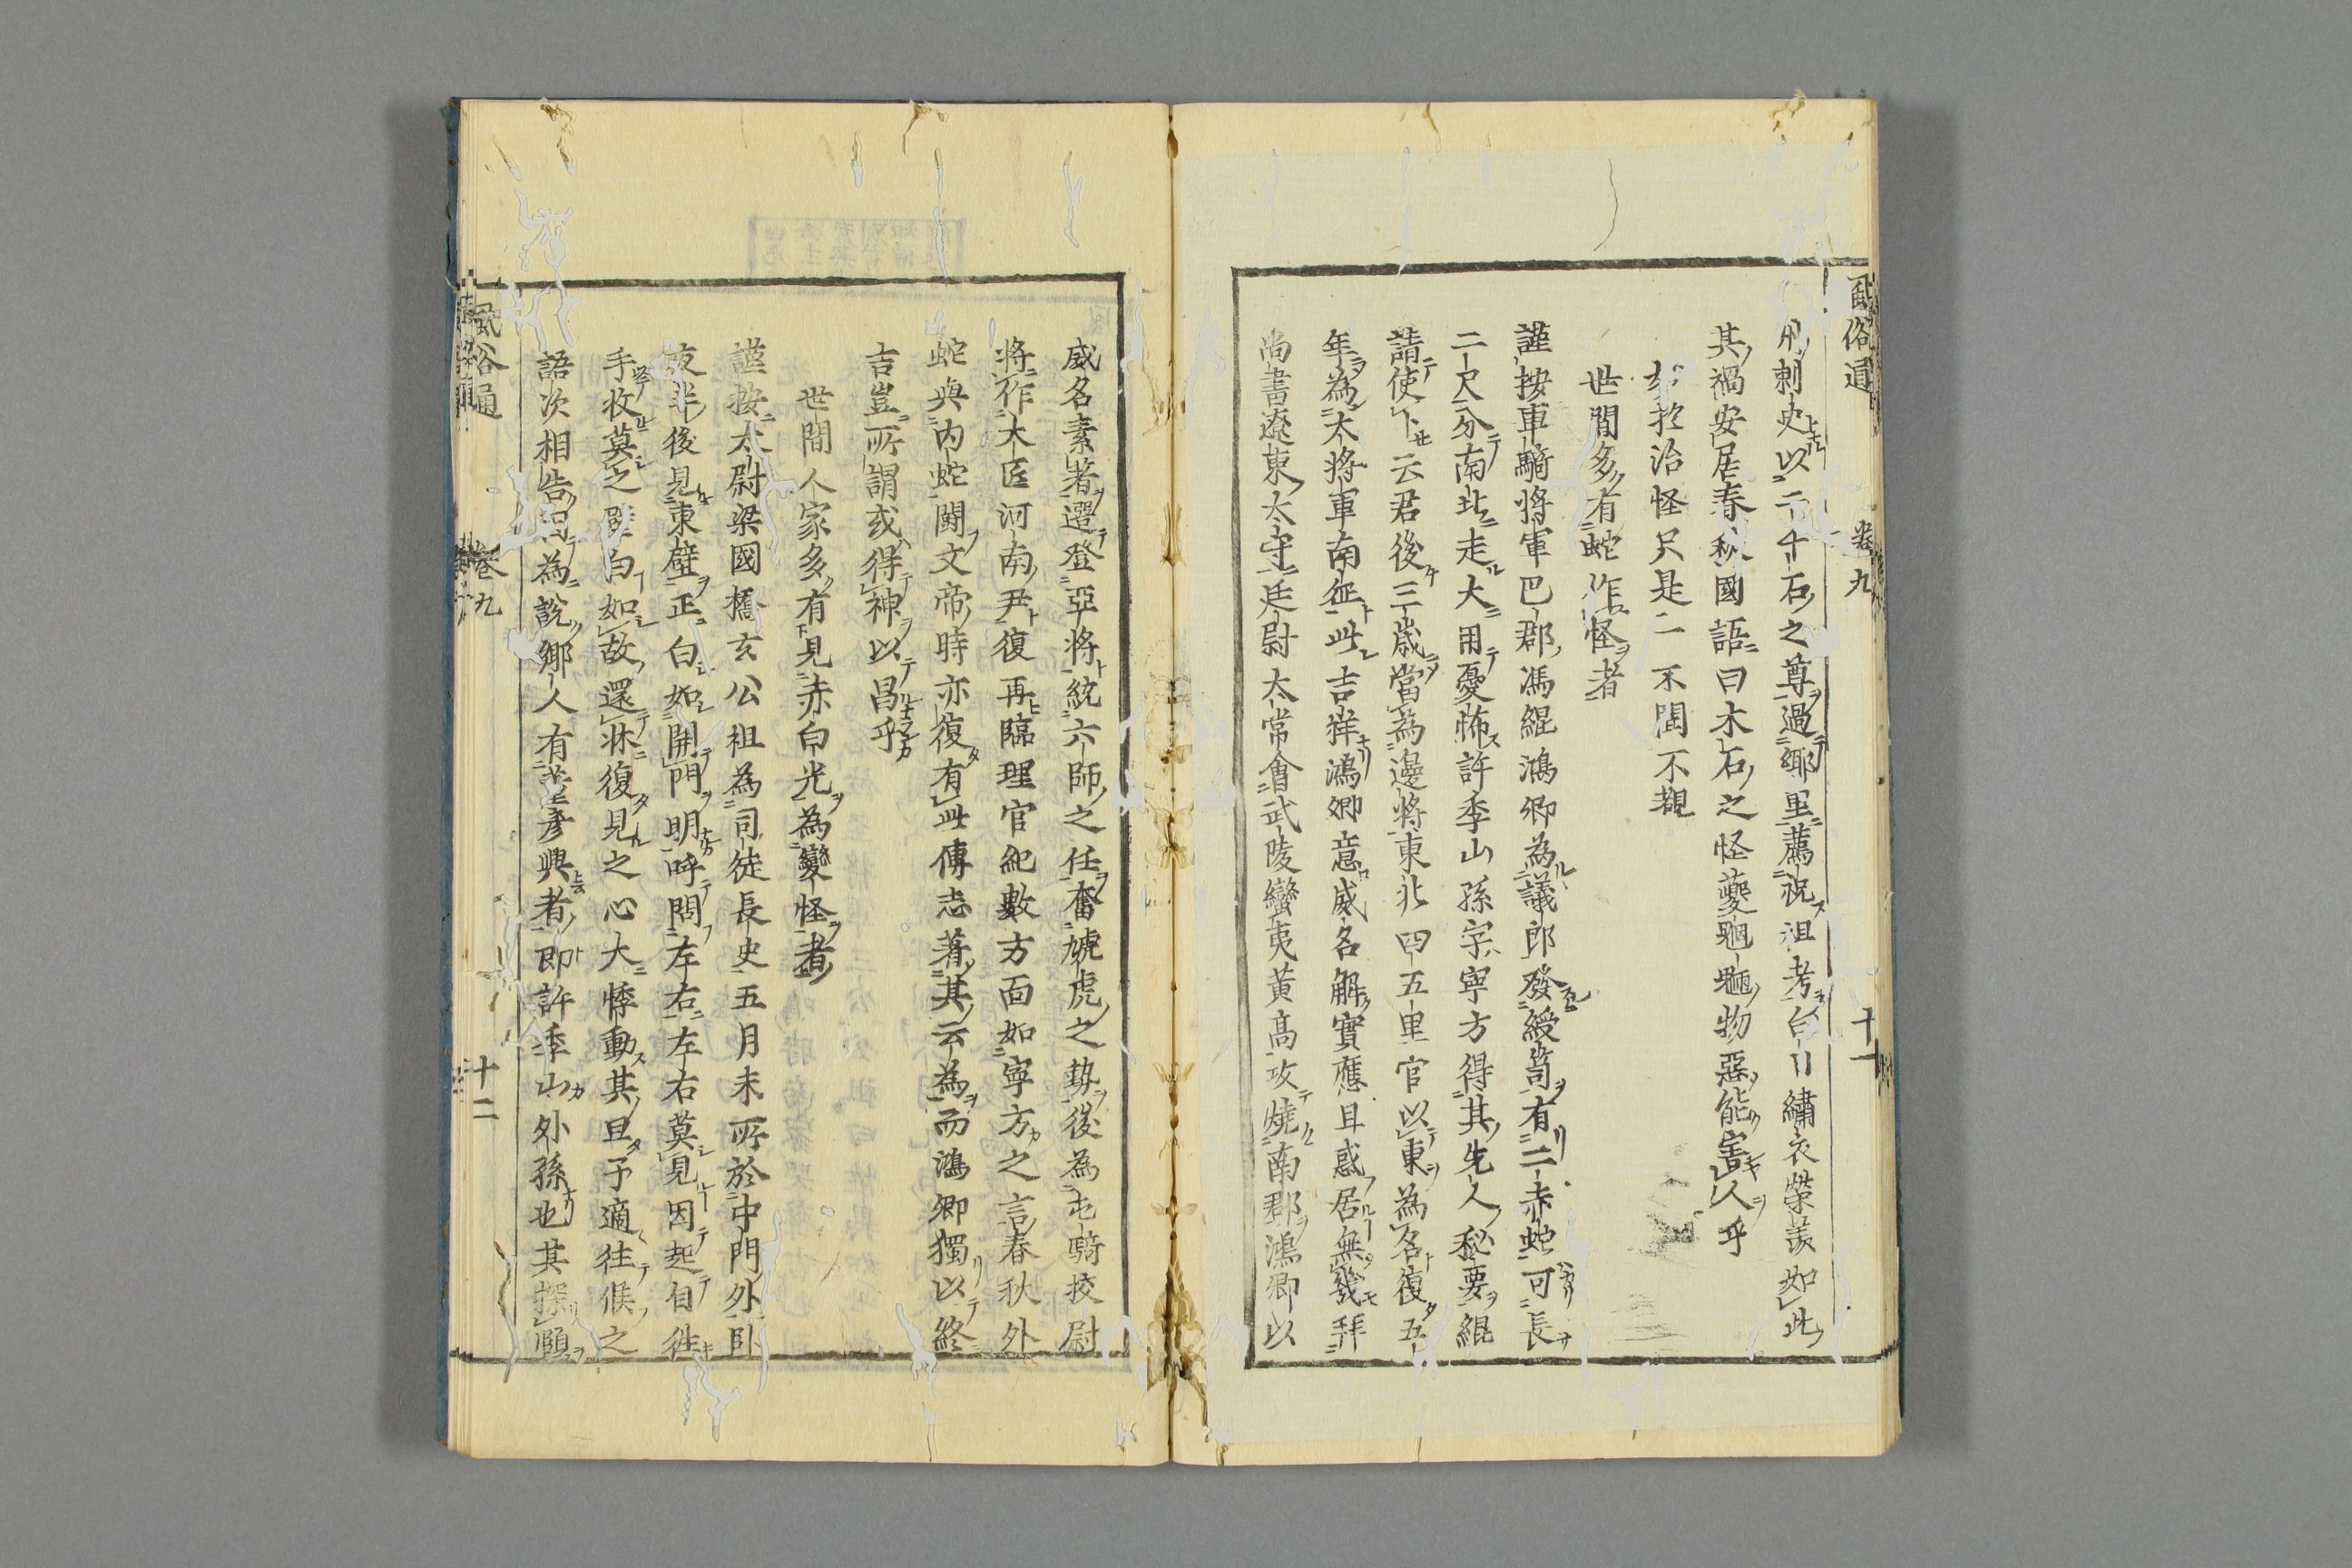 風俗通　卷九　十一
刺史以二千石之尊過鄉里薦祝祖考白日繡衣榮羨如此
其禍安居春秋國語曰木石之怪夔魍魎物惡能害人乎
於治怪只是二不聞不覩
世間多有蛇作怪者
謹按車騎將軍巴郡馮緄鴻卿為議郎發綬笥有二赤蛇可長
二尺分南北走大用憂怖許季山孫字寧方得其先人秘要緄
請使卜云君後三歲當為邊將東北四五里官以東為名復五
年為大將軍南征此吉祥鴻卿意威名解實應且惑居無幾拜
尚書遼東太守廷尉太常會武陵蠻夷黃高攻燒南郡鴻卿以
威名素著選登亞將統六師之任奮虓虎之勢後為屯騎校尉
將作大匠河南尹復再臨理官紀數方面如寧方之言春秋外
蛇與內蛇鬪文帝時亦復有此傳志著其云為而鴻卿獨以終
吉豈所謂或得神以昌乎
世間人家多有見赤白光為變怪者
謹按太尉梁國橋玄公祖為司徒長史五月末所於中門外臥
夜半後見東壁正白如開門明呼問左右左右莫見因起自往
手收莫之壁白如故還牀復見之心大悸動其旦予適往候之
語次相告因為說鄉人有董彥興者即許季山外孫也其探賾
風俗通　卷九　十二